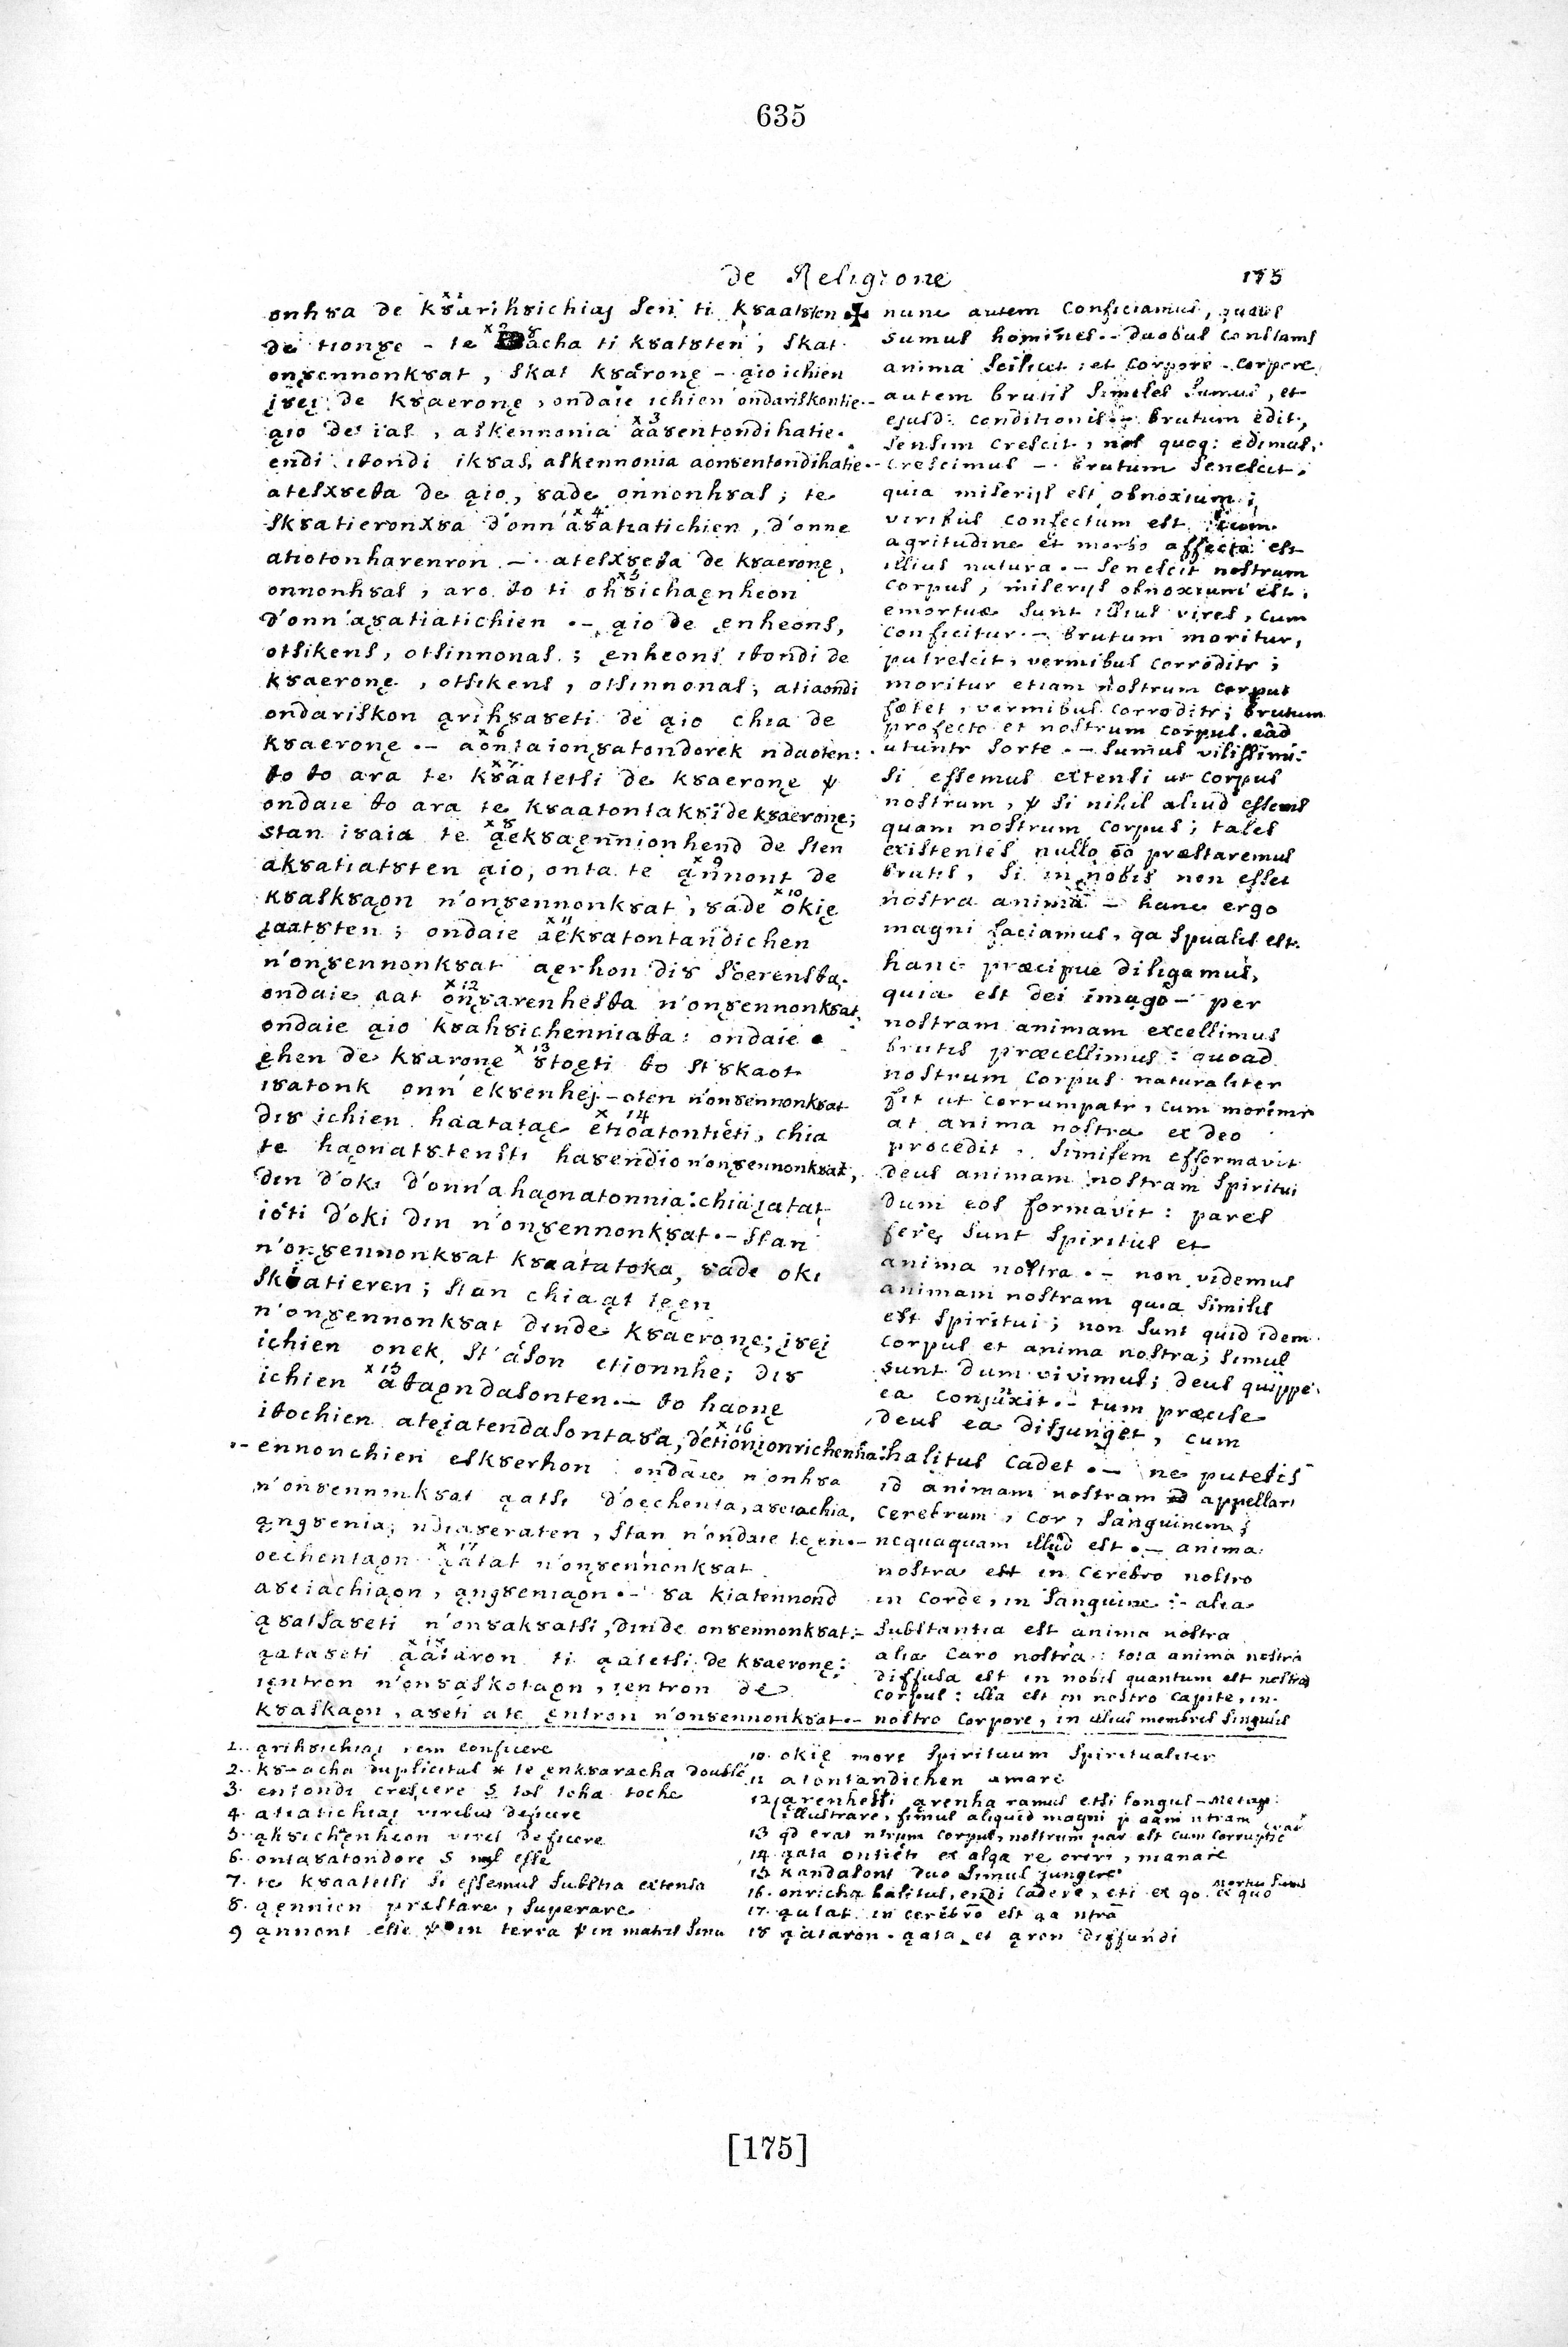 635
de Religione 175
onhȣa de kȣarihȣichiaj sen ti kȣaatsten ✠
de tionȣe - te ȣacha ti kȣatsten, skat
onȣennonkȣat, skat kȣaronę - ąio ichien
įȣeį de kȣaeronę, ondaie ichien ondariskontie -
ąio de ias, askennonia aaȣentondihatie.
endi itondi ikȣas, askennonia aonȣentondihatie -
atesxȣeta de ąio, ȣade onnonhȣas; te
skȣatieronxȣa d'onn'aȣatiatichien, d'onne
atiotonharenron - atesxȣeta de kȣaeronę,
onnonhȣas, aro to ti ohȣichaęnheon
d'onn'aȣatiatichien - ąio de ęnheons,
otsikens, otsinnonas; ęnheons itondi de
kȣaeronę, otsikens, otsinnonas; atiaondi
ondariskon ąrihȣaȣeti de ąio chia de
kȣaeronę - aontaionȣatondorek ndaoten:
to to ara te kȣaatetsi de kȣaeronę ψ
ondaie to ara te kȣaatontakȣi de kȣaeronę;
stan isaia te ąekȣaęnnionhend de sten
akȣatiatȣten ąio, onta te ąnnont de
kȣaskȣaǫn n'onȣennonkȣat, ȣade okię
įaatȣten; ondaie aekȣatontandichen
n'onȣennonkȣat aęrhon diȣ soerensta.
ondaie aat onȣarenhesta n'onȣennonkȣat,
ondaie ąio kȣahȣichenniata: ondaie
ęhen de kȣaronę ȣtoęti to st ȣkaot
iȣatonk onn'ekȣenhej - oten n'onȣennonkȣat
diȣ ichien haatataę etioatontieti, chia
te haǫnatȣtensti haȣendio n'onȣennonkȣat,
din d'oki d'onn'ahaǫnatonnia: chia įatat
ioti d'oki din n'onȣennonkȣat - stan
n'onȣennonkȣat kȣaatatoka, ȣade oki
skȣatieren; stan chia ąt teęn
n'onȣennonkȣat dinde kȣaeronę; įȣeį
ichien onek, st'ason etionnhe; diȣ
ichien ataǫndasonten - to haonę
itochien atejatendasontaȣa, d'etionįonrichenha:
ennonchien eskȣerhon ondaie n'onhȣa
n'onȣennonkȣat ąatsi d'oechenta, aȣeiachia,
ąngȣenia, ndiaȣeraten, stan n'ondaie teęn -
oechentaǫn ąatat n'onȣennonkȣat
aȣeiachiaǫn, ąngȣeniaǫn - ȣa kiatennond
ąȣatsaȣeti n'onȣakȣatsi, dinde onȣennonkȣat -
ąataȣeti ąataron ti ąatetsi de kȣaeronę:
ięntron n'onȣaskotaǫn, ientron de
kȣaskaǫn, aȣeti ate ęntron n'onȣennonkȣat -
nunc autem Conficiamus, quales
sumus homines - duobus constams
anima scilicet et corpore - corpore
autem brutis similes sumus, et
ejusd: conditionis - brutum edit,
sensim crescit, nos quoq: edimus,
crescimus - brutum senescit,
quia miserijs est obnoxium;
viribus confectum est, cum
agritudine et morbo affecta est
illius natura - senescit nostrum
corpus, miserijs obnoxium est,
emortuæ sunt illius vires, cum
conficitur - brutum moritur,
putrescit, vermibus corroditr;
moritur etiam nostrum corpus
fœtet, vermibus corroditr; brutum
profecto et nostrum corpus eâd
utuntr sorte - sumus vilissimi
si essemus extensi ut corpus
nostrum, ψ si nihil aliud essems
quam nostrum corpus; tales
existentes nullo õo præstaremus
brutis, si in nobis non esset
nostra anima - hanc ergo
magni faciamus, qa spualis est.
hanc præcipue diligamus,
quia est dei imago - per
nostram animam excellimus
brutis præcellimus: quoad
nostrum corpus naturaliter
fit ut corrumpatr, cum morimr
at anima nostra ex deo
procedit, similem efformavit
deus animam nostram spiritui
dum eos formavit: pares
ferè sunt spiritus et
anima nostra - non videmus
animam nostram quia similis
est spiritui; non sunt quid idem
corpus et anima nostra; simul
sunt dum vivimus; deus quippe
ea conjūxit - tum præcise
deus ea disjunget, cum
halitus cadet - ne putetis
id animam nostram appellari
cerebrum, cor, sanguinem;
nequaquam illud est - anima
nostra est in cerebro nostro
in corde, in sanguine - alia
substantia est anima nostra
alia caro nostra: tota anima nostra
diffusa est in nobis quantum est nostrū
corpus: illa est in nostro capite, in
nostro corpore, in illius membris singulis
1. ąrihȣichiaį rem conficere
2. kȣ-acha duplicitas x te ęnkȣaracha double
3. entondi crescere S tos tcha toche
4. atiatichiaį viribus deficere
5. ąkȣichenheon vires deficere
6. ontaȣatondore S esse
7. te kȣaatetsi si essemus substia extensa
8. ąęnnien præstare, superare
9 ąnnont esse ψ in terra ψ in matris sinu
10. okię more spirituum spiritualiter
11 atontandichen amare
12 ąarenhesti ąrenha ramus etsi longus - Metap:
illustrare, simul aliquid magni p aam ntram
13 qd erat ntrum corpus, nostrum par est cum corruptic
14. ąata ontieti ex alqa re oriri, manare
15 kandasont duo simul jungere
16. onricha halitus, endi cadere, eti ex qo ex quo
17. ąatat in cerebro est qa ntrā
18 ąataron. ąata et ąron diffundi
[175]